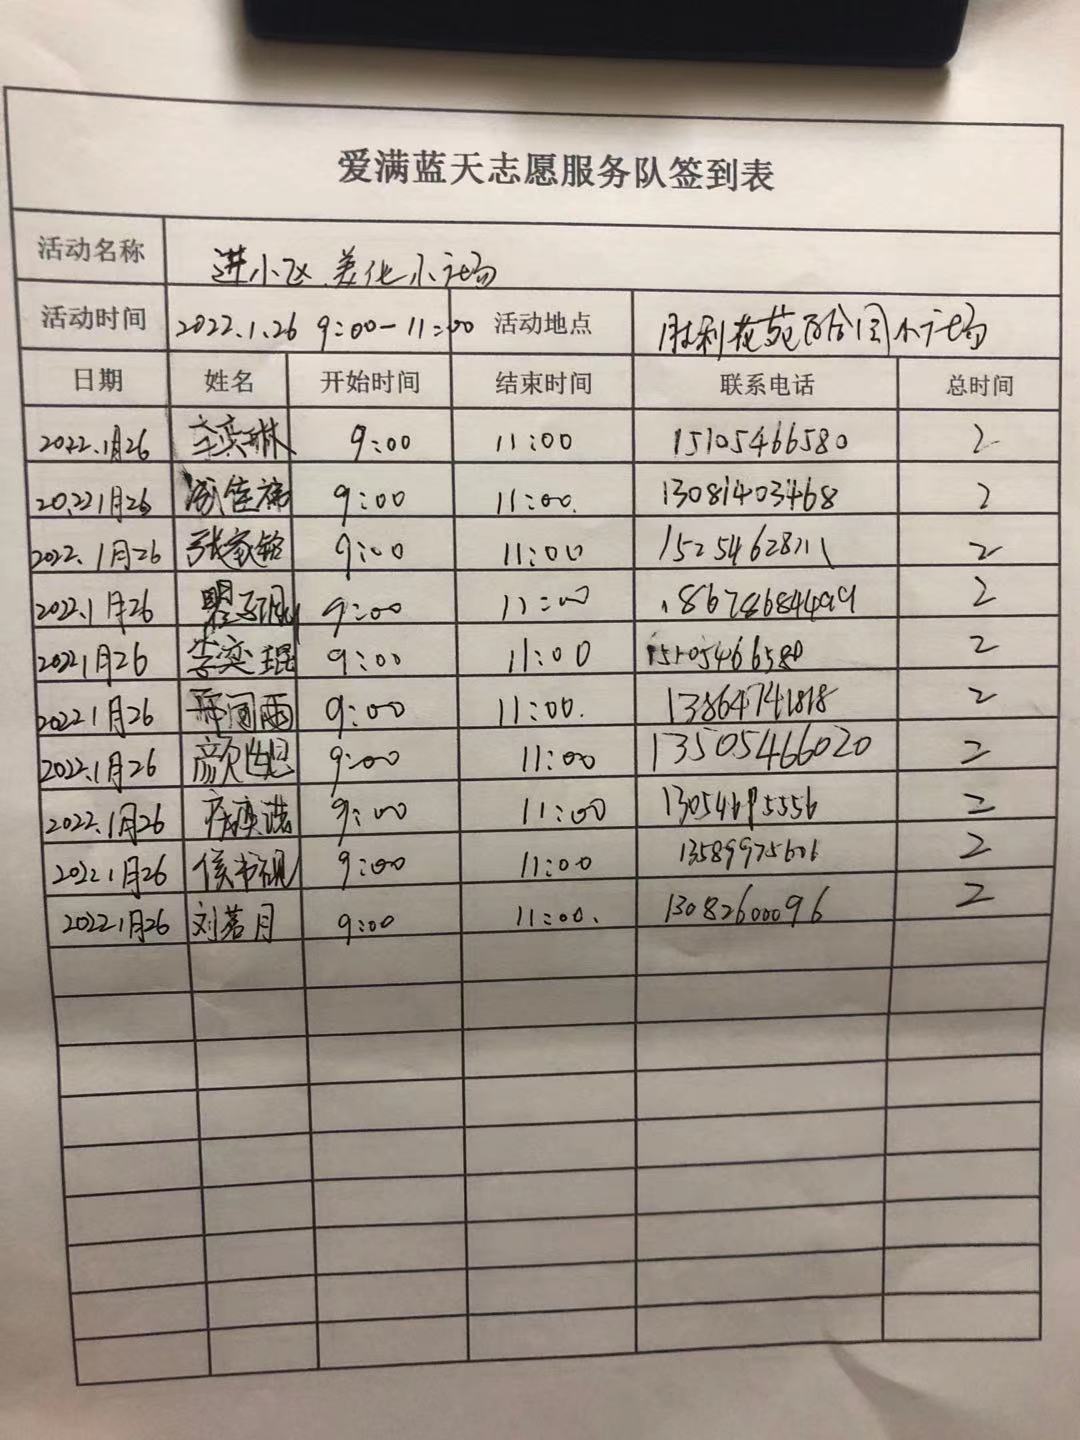 爱满蓝天志愿服务队签到表
活动名称 进小区 美化小广场
活动时间 2022.1.26 9:00-11:00 活动地点 胜利花苑百合园小广场
日期 姓名 开始时间 结束时间 联系电话 总时间
2022.1月26 李奕琳 9:00 11:00 15105466580 2
2022 1月26 佳 9:00 11:00. 13081403468 2
2022.1月26 张家铭 9:00 11:00 2
2022.1月26 9:00 11:00 18678684499 2
2022 1月26 李奕琨 9:00 11:00 15105466580 2
2022 1月26 雨 9:00 11:00. 13864741818 2
2022.1月26 颜 9:00 11:00 13505466020 2
2022.1月26 9:00 11:00 13054695556 2
2022 1月26 侯书砚 9:00 11:00 13589975601 2
2022 1月26 刘茗月 9:00 11:00. 13082600096 2